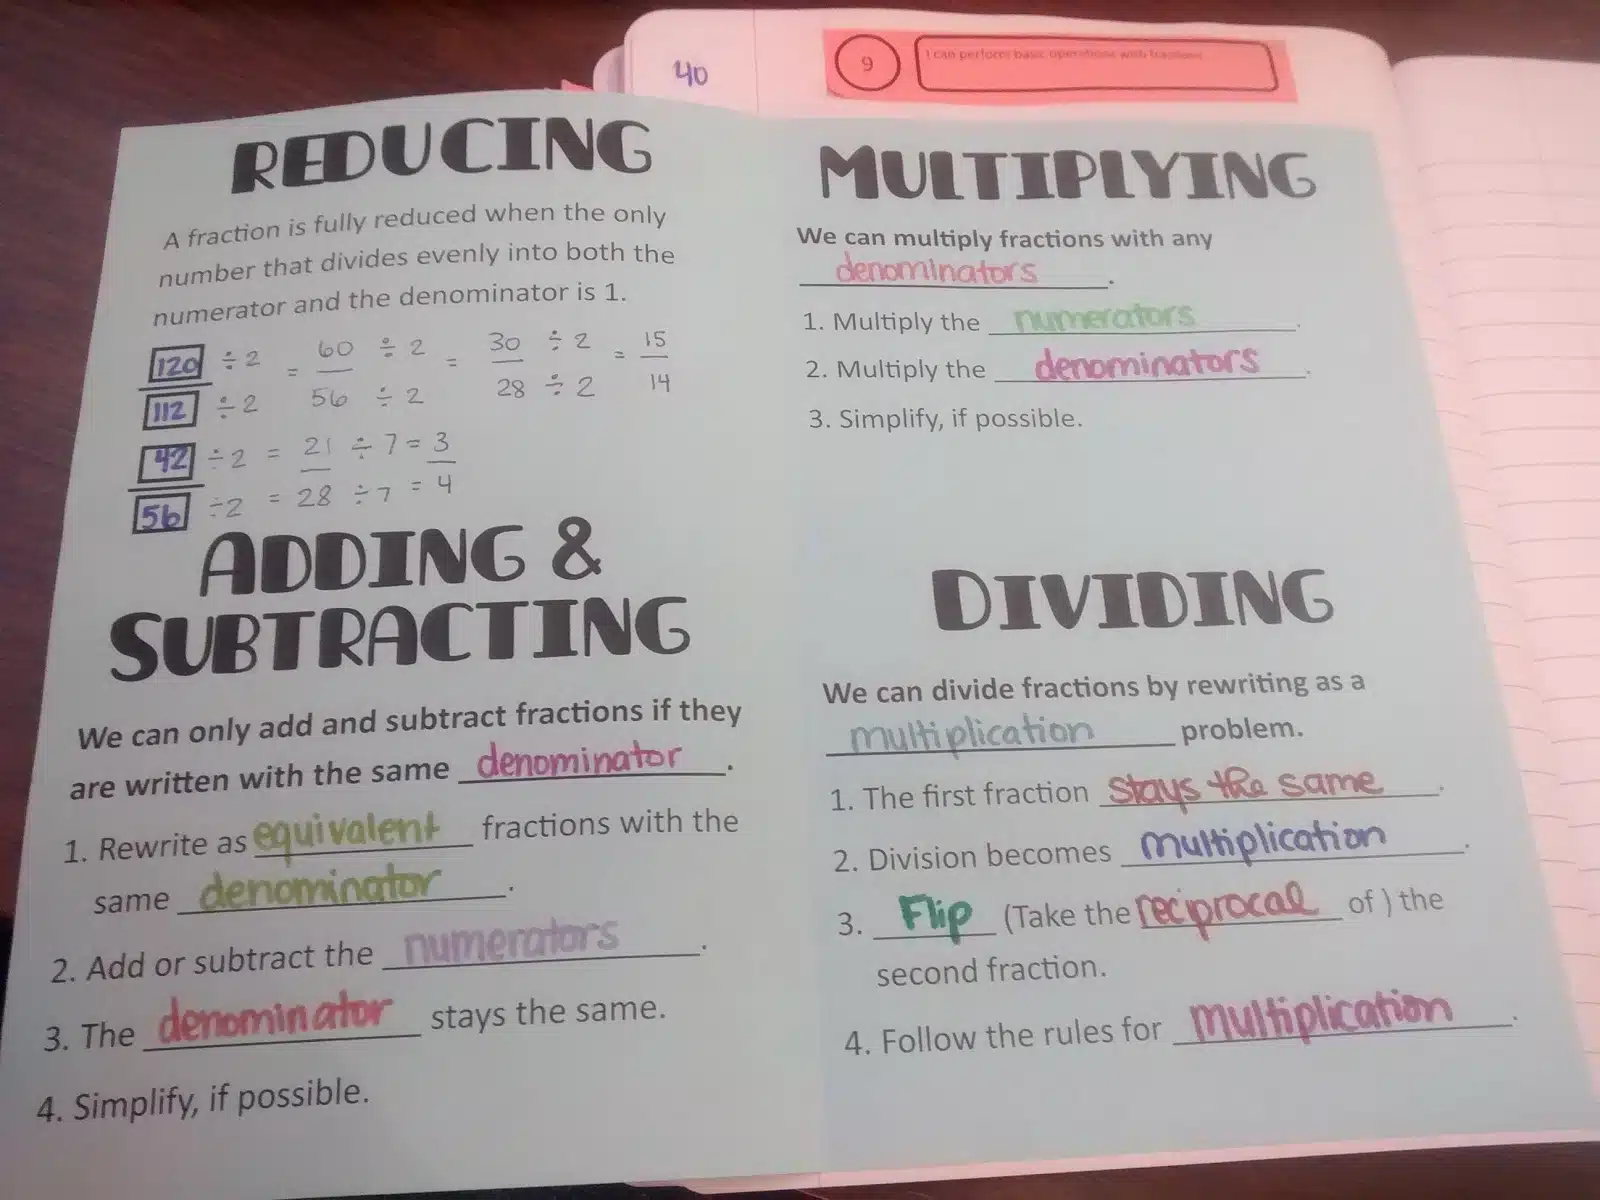 40
9
I can perform basic operations with fractions
REDUCING
A fraction is fully reduced when the only
number that divides evenly into both the
numerator and the denominator is 1.
120 ÷ 2 = 60 ÷ 2 = 30 ÷ 2 = 15
112 ÷ 2 56 ÷ 2 28 ÷ 2 14
42 ÷ 2 = 21 ÷ 7 = 3
56 ÷ 2 = 28 ÷ 7 = 4
ADDING &
SUBTRACTING
We can only add and subtract fractions if they
are written with the same denominator.
1. Rewrite as equivalent fractions with the
same denominator.
2. Add or subtract the numerators.
3. The denominator stays the same.
4. Simplify, if possible.
MULTIPLYING
We can multiply fractions with any
denominators.
1. Multiply the numerators.
2. Multiply the denominators.
3. Simplify, if possible.
DIVIDING
We can divide fractions by rewriting as a
multiplication problem.
1. The first fraction stays the same.
2. Division becomes multiplication.
3. Flip (Take the reciprocal of ) the
second fraction.
4. Follow the rules for multiplication.